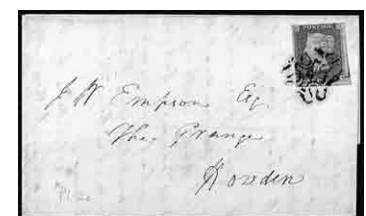 POSTAGE
J W Empson Esq
The Grange
Howden